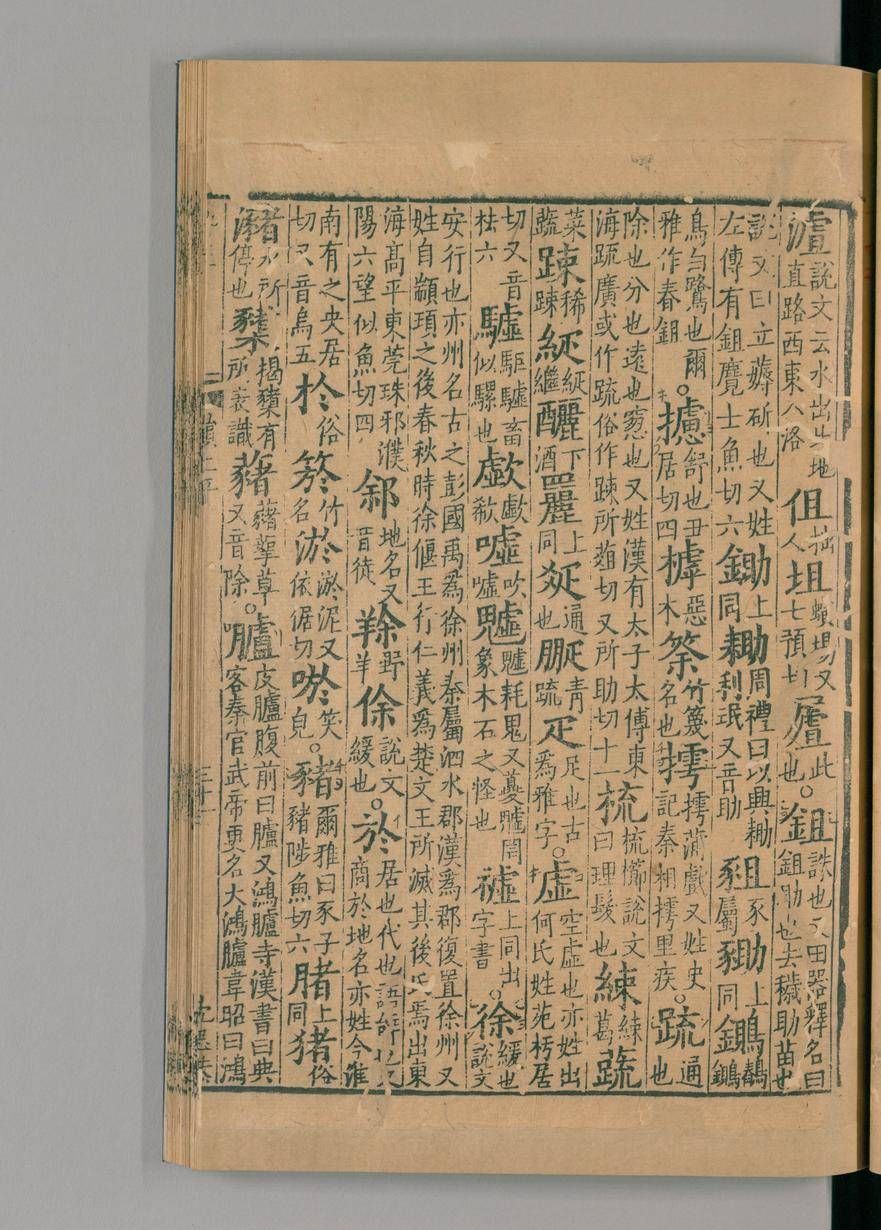 說文云水出北地直路西東入洛伹拙人坥螾場又七預切此也○鉏誅也又田器釋名曰鉏助也去穢助苗也
說文曰立薅斫也又姓左傳有鉏麑士魚切六鋤上同耡周禮曰以興耡利氓又音助豠豕屬上同
鳥白鷺也爾雅作舂鉏○攄舒也丑居切四樗惡木竹篾名也摴摴蒲戲又姓史記秦相摴里疾○疏通也
除也分也遠也窻也又姓漢有太子太傅東海疏廣或作疏俗作踈所葅切又所助切十一梳梳櫛說文曰理髮也練練葛蔬
菜蔬踈稀踈繼釃下酒上同通也疏疋足也古為雅字○虛空虛也亦姓出何氏姓苑朽居
切又音袪六驉駏驉畜似騾也歔歔欷噓吹噓魖魖耗鬼又夔魖罔象木石之怪也上同出字書○徐緩也說文
安行也亦州名古之彭國禹為徐州秦屬泗水郡漢為郡復置徐州又姓自顓頊之後春秋時徐偃王行仁義為楚文王所滅其後氏焉出東
海高平東莞琅邪濮陽六望似魚切四䣄地名又音徒野羊俆說文緩也○於居也代也語辭也又商於地名亦姓今淮
南有之央居切又音烏五扵俗箊竹名淤淤泥又依倨切唹笑皃○豬爾雅曰豕子豬陟魚切六上同猪俗
瀦水所停也櫫楬櫫有所表識藸藸蒘草又音除○臚皮臚腹前曰臚又鴻臚寺漢書曰典客秦官武帝更名大鴻臚韋昭曰鴻